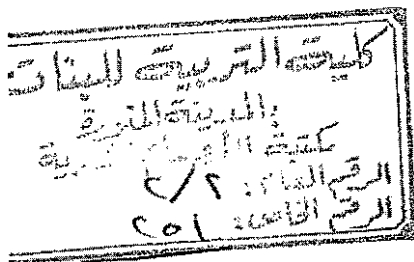 كلية التربية للبنات
بالمدينة المنورة
مكتبة
الرقم العام: ٢/٢
الرقم الخاص: ٢٥١